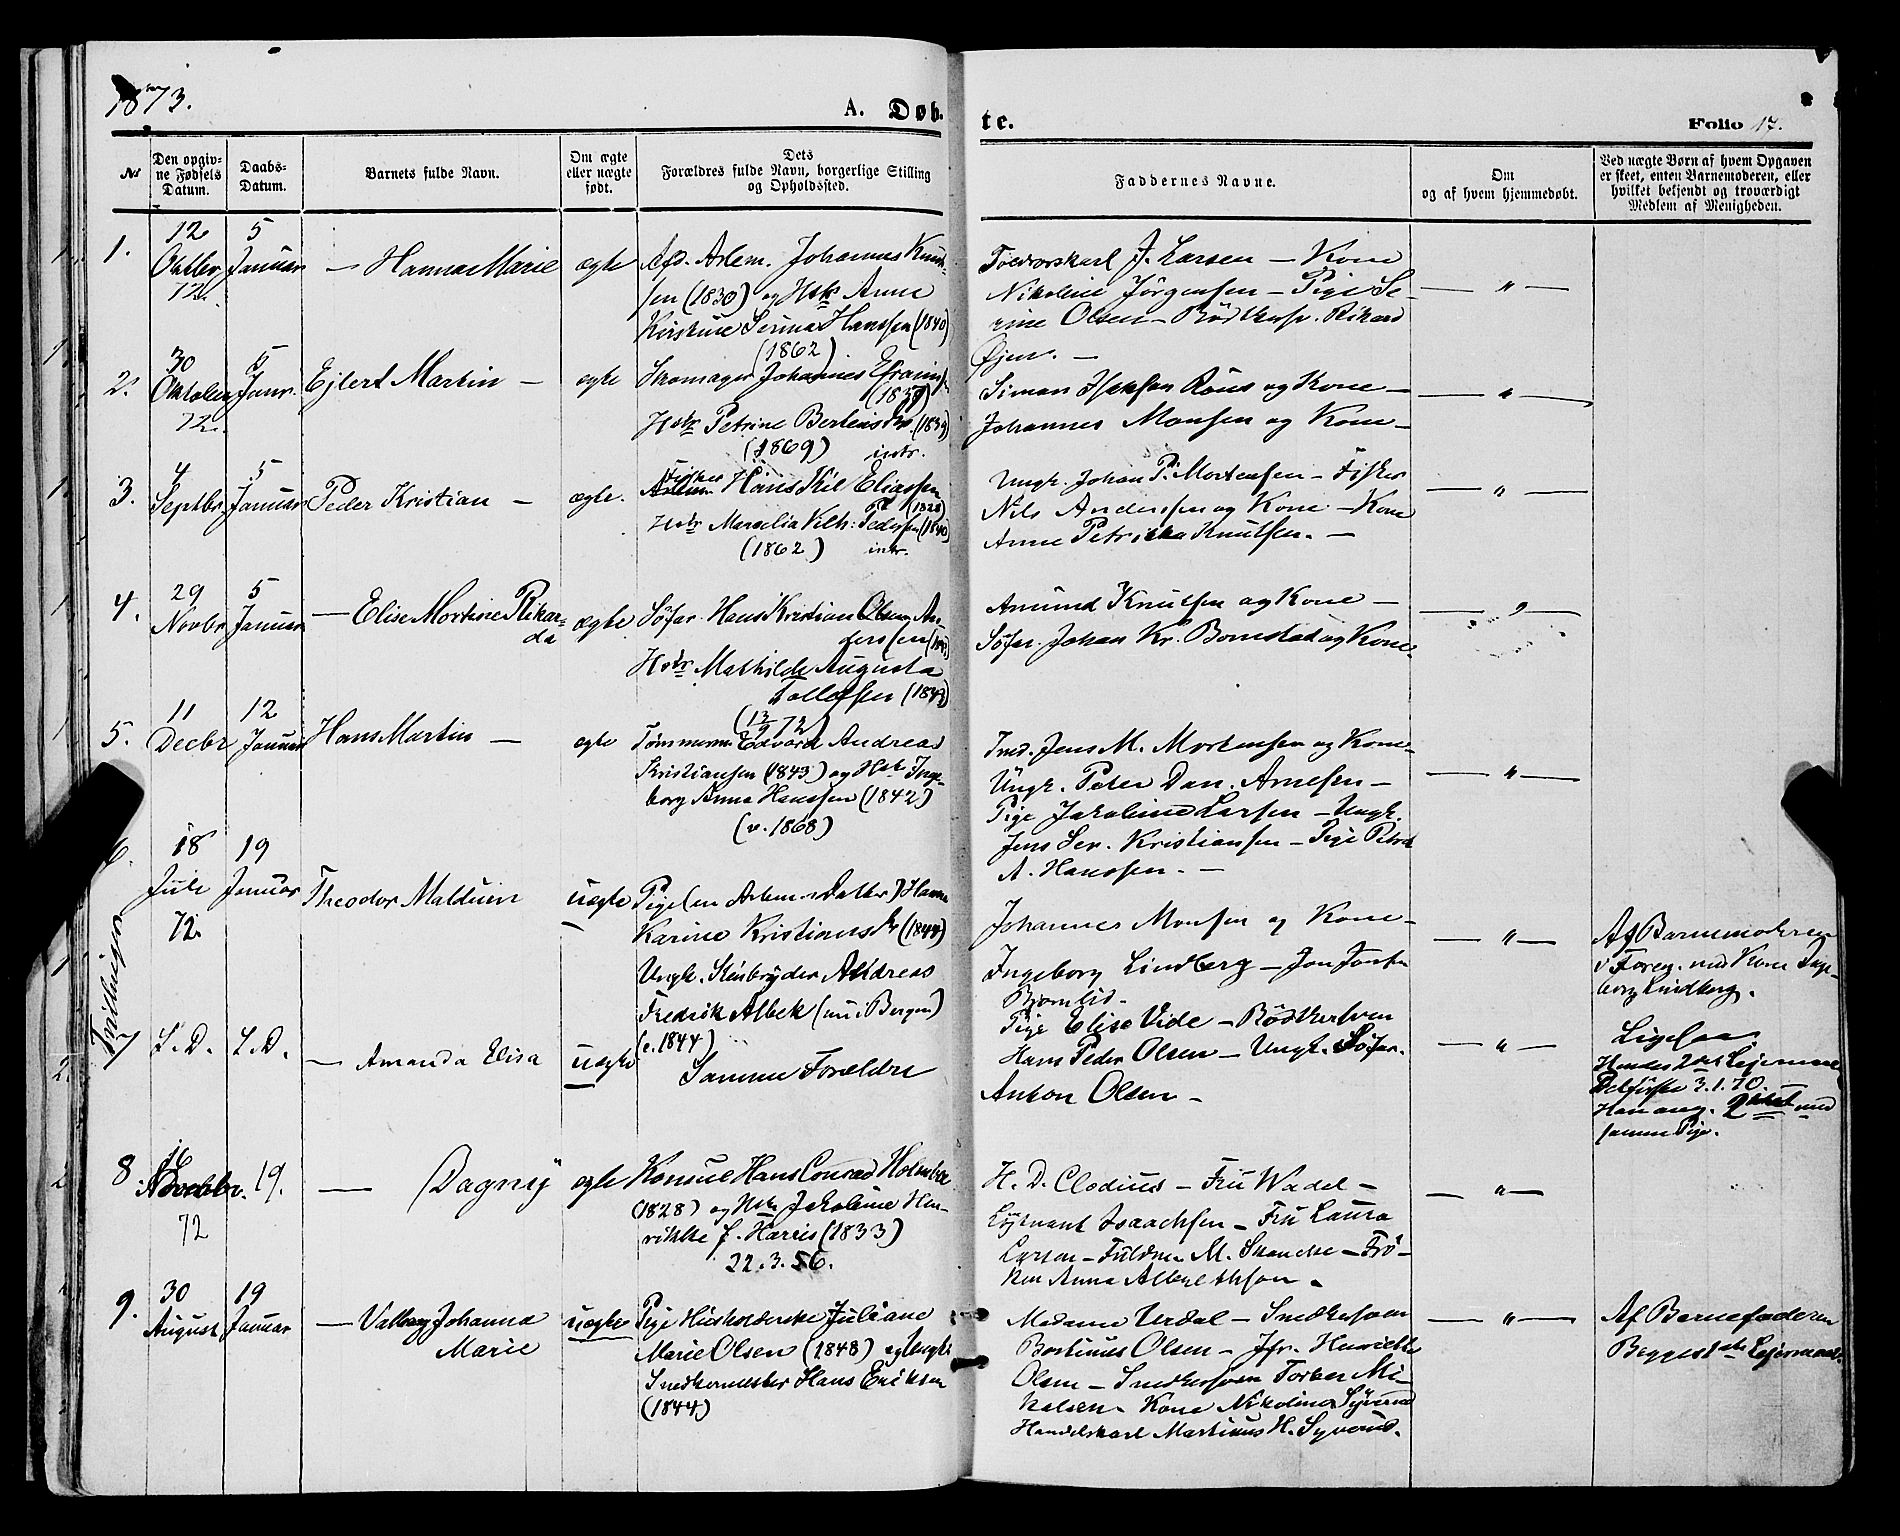 1873.
A. Døb-
te.
Folio 17.
No
Den opgiv-
ne Fødsels
Datum.
Daabs-
Datum.
Barnets fulde Navn.
Om ægte
eller uægte
født.
Dets
Forældres fulde Navn, borgerlige Stilling
og Opholdssted.
Faddernes Navne.
Om
og af hvem hjemmedøbt.
Ved uægte Børn af hvem Opgaven
er skeet, enten Barnemoderen, eller
hvilket bekjendt og troværdigt
Medlem af Menigheden.
1.
12
Oktbr
72.
5
Januar
— Hanna Marie
ægte
Afd. Arbm. Johannes Knud-
sen (1830) og Hstr Anne
Kirstine Serina Hanssen (1840)
(1862)
J. Larsen — Kone
Nikoline Jørgensen — Pige Se-
rine Olsen — Rikard
— " —
2.
30
Oktober
72.
5
Janr.
Ejlert Martin —
ægte
Skomager Johannes Efraims.
Hstr Petrine (1839)
(1869) intr.
Simon og Kone —
Johannes Monsen og Kone —
— " —
3.
4
Septbr
5
Januar
Peder Kristian —
ægte.
Fisker
Hans Kil Eliassen
(1828)
Hstr Marselia Vilh. Pedersen (1840)
(1862) intr.
Ungk. Johan P. Mortensen — Fisker
Nils Anderssen og Kone — Kone
Anne Petrikka Knutsen. —
— " —
4.
29
Novbr
5
Januar
— Elise Martine Rikar-
da
ægte
Søfar. Hans Kristian Olsen An-
derssen
Hstr Mathilde Augusta
Tollefsen
(13/9 72)
Amund Knutsen og Kone —
Søfar. Johan Kr. Bomstad og Kone.
— " —
5.
11
Decbr
12
Januar
Hans Martin —
ægte
Tømmerm. Edvard Andreas
Kristiansen (1843) og Hstr Inge-
borg Anna Hanssen (1842)
(v. 1868)
Ind. Jens M. Mortensen og Kone —
Ungk. Peter Dan. Arnesen —
Pige Jakobine Larsen — Ungk.
Jens Sev. Kristiansen — Pige Petra
A. Hanssen. —
— " —
6.
18
Juli
72.
19
Januar
Theodor Malduin
uægte
Pige (en Arbm.s Datter) Hanna
Karine (1844)
Ungk. Andreas
Fredrik Albek (nu i Bergen)
(v. 1844)
Johannes Monsen og Kone —
Ingeborg Lindberg — Jon
— " —
Af Barnemoderen
i Foreg. med Kone Inge-
borg Lindberg.
Tvillinger
7
S. D.
S. D.
— Amanda Elisa
uægte
Samme Forældre
Pige Elise Vide — Bødkersven
Hans Peder Olsen — Ungk. Søfar.
Anton Olsen —
— " —
Ligesaa
Hendes 2det Leierm.
Det første 3.1.70.
Han ang. 2det med
samme Pige.
8
16
72
19.
— Dagny
ægte
Konsul Hans Conrad
(1828) og Hstr Jakobine Hen-
rikke f. Harris (1833)
22.3.56.
H. D. Clodius — Fru Wadel —
Løjtnant Isaachsen — Fru Laura
Larsen — M. — Frø-
ken Anna Albrethson —
— " —
9.
30
August
19
Januar
— Valborg Johanna
Marie
uægte
Pige Husholderske Juliane
Marie Olsen (1848) og Ungk.
Snedkermester Hans Eriksen
(1844)
Madame Verdal — Snedkersven
Bortinus Olsen — Jfr. Henrikke
Olsen — Snedkersven Torber Mi-
kelsen — Kone Nikolina Syverud
Handelskarl Martinus H. Syverud.
— " —
Af Barnefaderen
Begges 1ste Leiermaal.